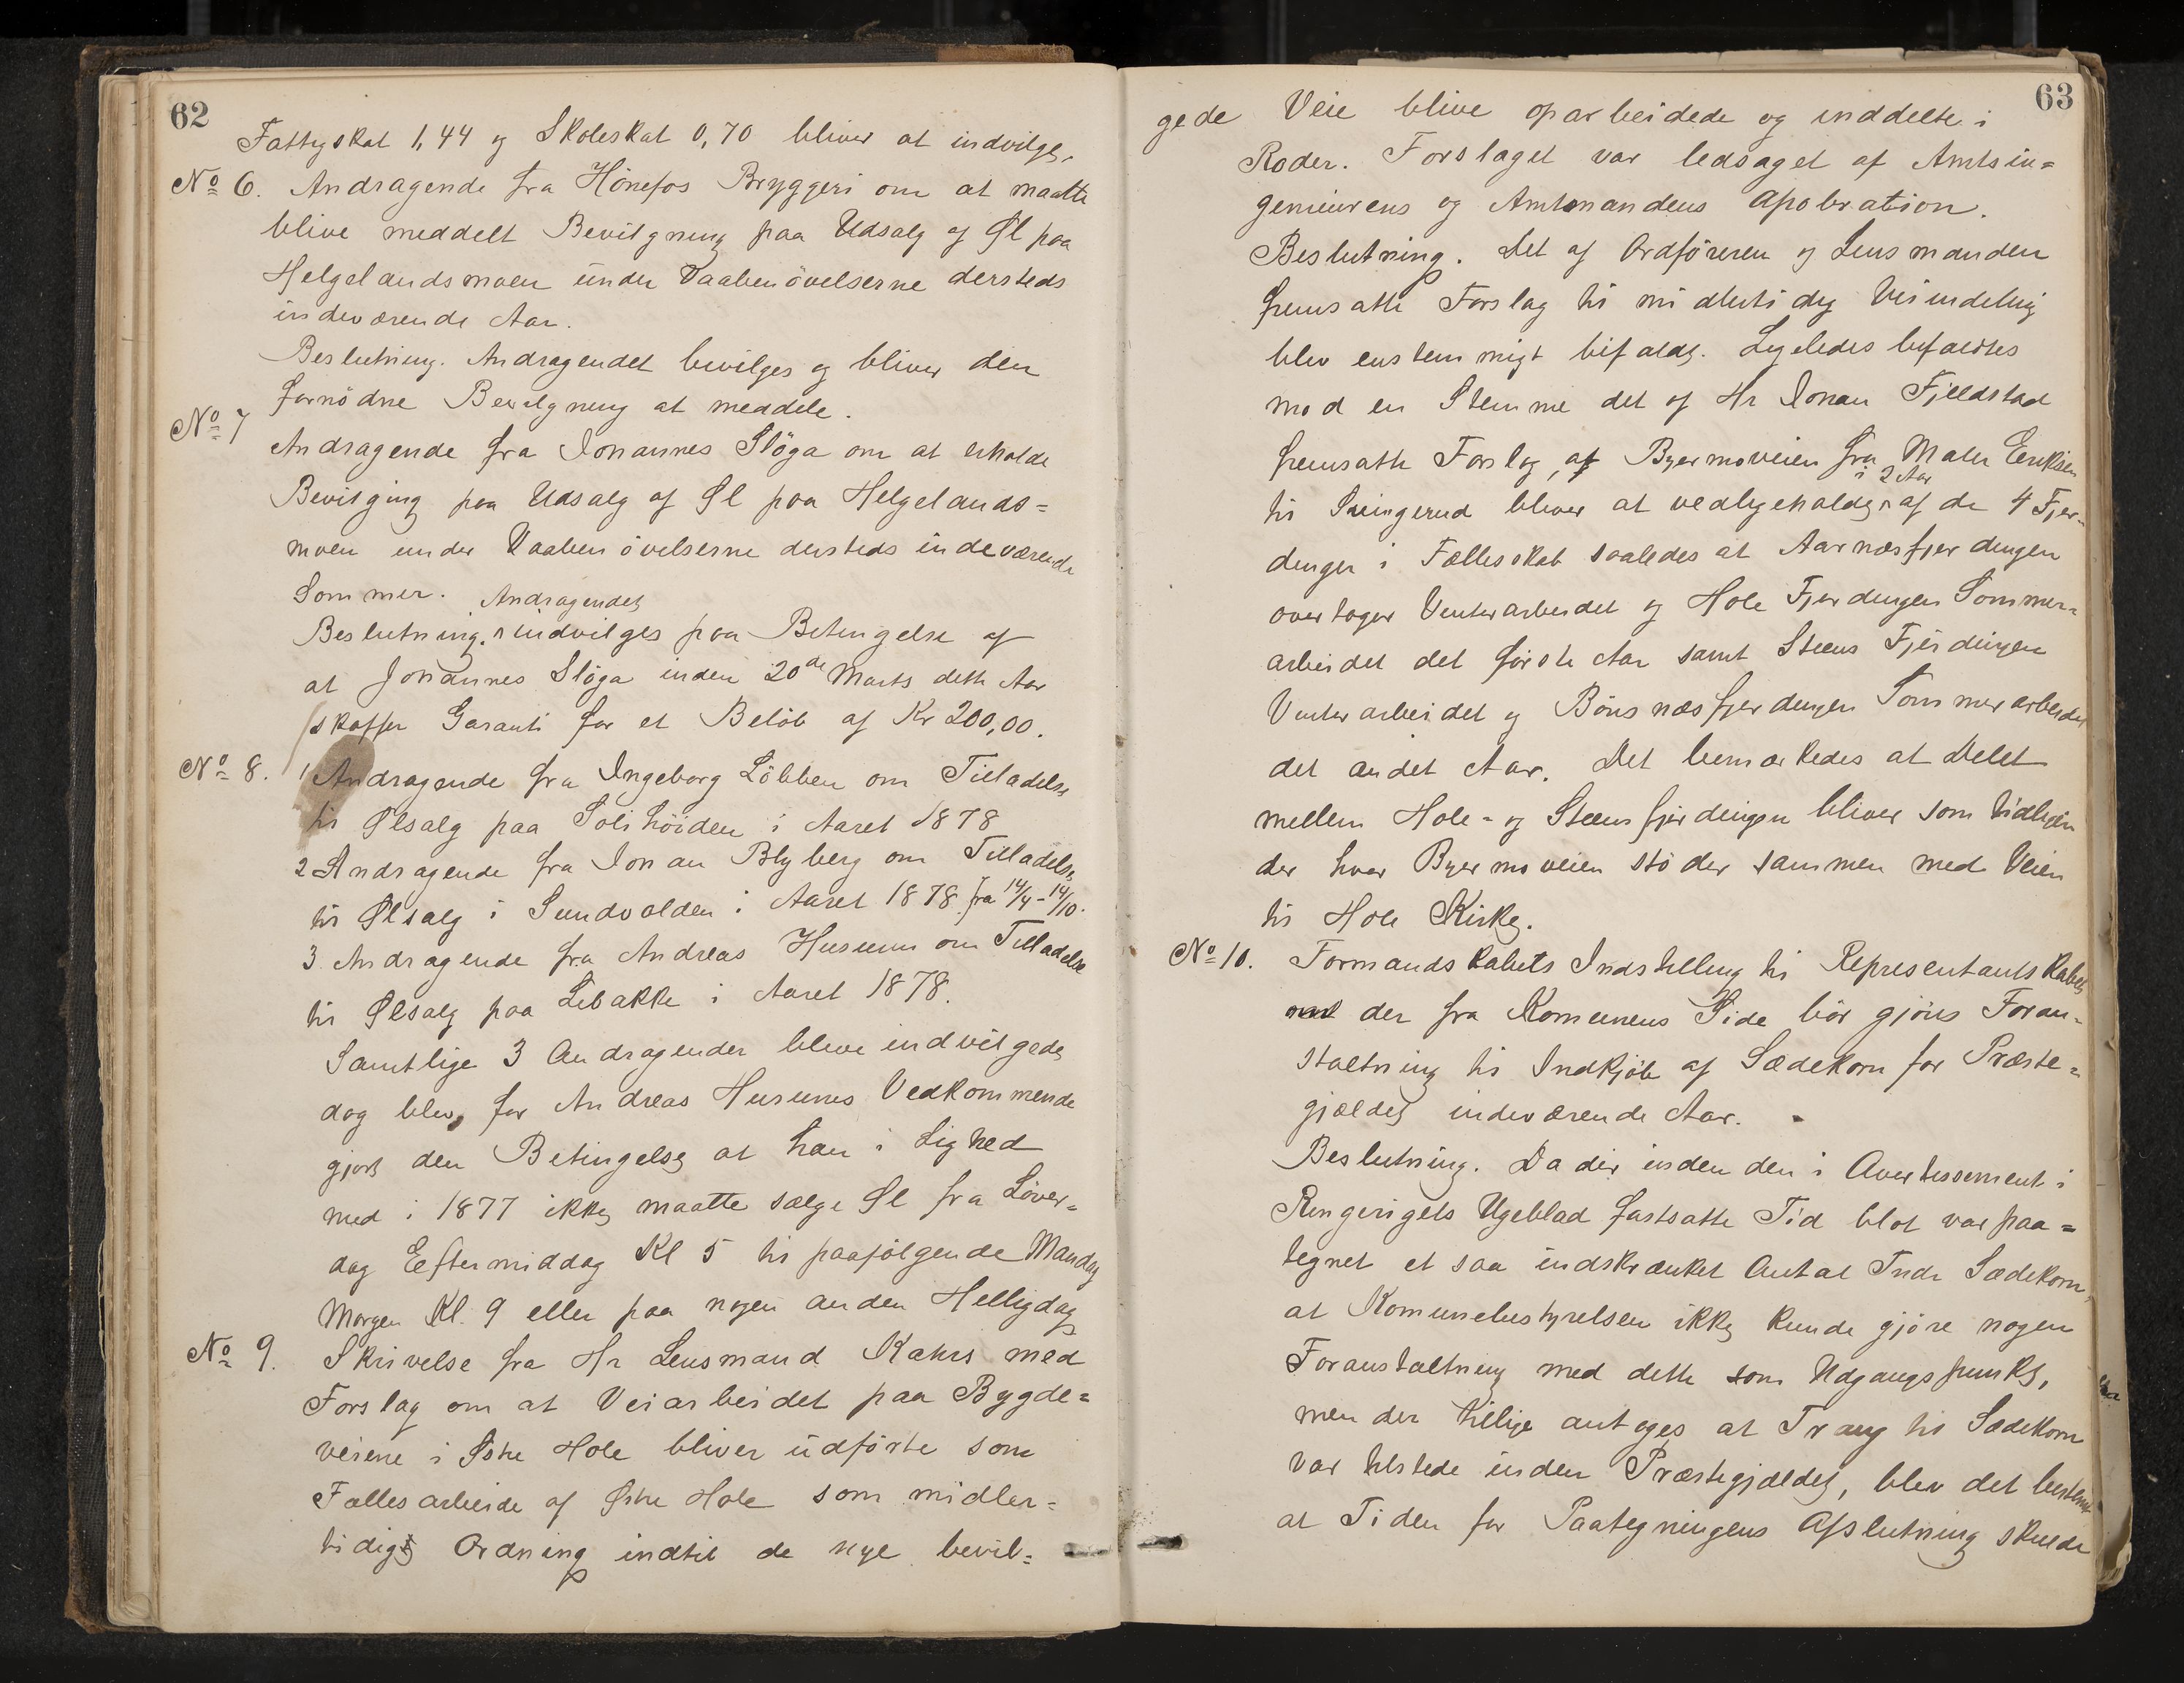 62
Fattigskat 1,44 og Skoleskat 0,70 bliver at indvilge.
No 6. Andragende fra Hönefos Bryggeri om at maatte
blive meddelt Bevilgning paa Udsalg af Øl paa
Helgelandsmoen under Vaabenövelserne dersteds
indeværende Aar.
Beslutning. Andragendet bevilges og bliver den
fornödne Bevilgning at meddele.
No 7
Andragende fra Johannes Slöga om at erholde
Bevilging paa Udsalg af Øl paa Helgelands=
moen under Vaabenövelserne dersteds indeværende
Sommer. Andragendet
Beslutning. indvilges paa Betingelse af
at Johannes Slöga inden 20de Marts dette Aar
skaffer Garanti for et Belöb af Kr 200,00.
No 8. 1 Andragende fra Ingeborg Löbben om Tilladelse
til Ølsalg paa Solihöiden i Aaret 1878
2 Andragende fra Johan Blyberg om Tilladelse
til Ølsalg i Sundvolden i Aaret 1878 fra 14/4-14/10.
3 Andragende fra Andreas Husum om Tilladelse
til Ølsalg paa Libakke i Aaret 1878.
Samtlige 3 Andragender bleve indvilgede
dog blev for Andreas Husums Vedkommende
gjort den Betingelse at han i Lighed
med i 1877 ikke maatte sælge Øl fra Löver=
dag Eeftermiddag Kl 5 til paafölgende Mandag
Morgen Kl. 9 eller paa nogen anden Helligdag
No 9. Skrivelse fra Hr Lensmand Kahrs med
Forslag om at Veiarbeidet paa Bygde=
veiene i Østre Hole bliver udförte som
Fællesarbeide af Østre Hole som midler=
tidig Ordning indtil de nye bevil=
63
gede Veie blive oparbeidede og inddelte i
Roder. Forslaget var ledsaget af Amtsin=
genieurens og Amtmandens Apobration.
Beslutning. Det af Ordföreren og Lensmanden
fremsatte Forslag til midlertidig Veiindeling
blev enstemmigt bifaldt. Ligeledes bifaldtes
mod en Stemme det af Hr Johan Fjeldstad
fremsatte Forslag, at Byermoveien fra Maler Eriksen
i 2 Aar
til Svingerud bliver at vedligeholdes af de 4 Fjer=
dinger i Fællesskab saaledes at Aarnæsfjerdingen
overtager Vinterarbeidet og Hole Fjerdingen Sommer=
arbeidet det förste Aar samt Steens Fjerdingen
Vinterarbeidet og Bönsnæsfjerdingen Sommerarbeidet
det andet Aar. Det bemærkedes at Delet
mellem Hole- og Steensfjerdingen bliver som tidligere
der hvor Byermoveien stöder sammen med Veien
til Hole Kirke.
No 10. Formandskabets Indstilling til Representantskabet
om der fra Komunens Side bör gjöres Foran=
staltning til Indkjöb af Sædekorn for Præste=
gjældet indeværende Aar.
Beslutning. Da der inden den i Avertissement i
Ringerigets Ugeblad fastsatte Tid blot var paa=
tegnet et saa indskrænket Antal Tndr Sædekorn,
at Komunebestyrelsen ikke kunde gjöre nogen
Foranstaltning med dette som Udgangspunkt,
men der tillige antoges at Trang til Sædekorn
var tilstede inden Præstegjældet, blev det bestemt
at Tiden for Paategningens Afslutning skulde